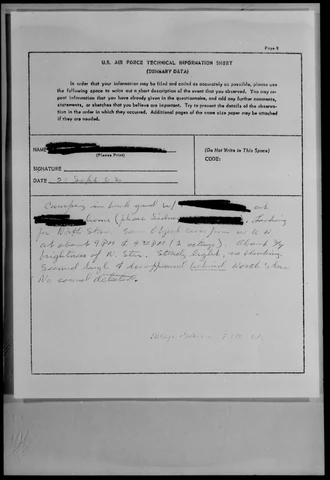 Page 8
U.S. AIR FORCE TECHNICAL INFORMATION SHEET
(SUMMARY DATA)
In order that your information may be filed and coded as accurately as possible, please use
the following space to write out a short description of the event that you observed. You may re-
peat information that you have already given in the questionnaire, and add any further comments,
statements, or sketches that you believe are important. Try to present the details of the observa-
tion in the order in which they occurred. Additional pages of the same size paper may be attached
if they are needed.
NAME
(Please Print)
SIGNATURE
DATE
(Do Not Write in This Space)
CODE:
Camping in back yard w/ at
home (phone Looking
for North Star. Saw object come from W
at about 9 PM & 9:30 PM (2 sightings). About
brightness of N. Star. Steady light, no blinking.
Second disappeared behind North
No sound detected.